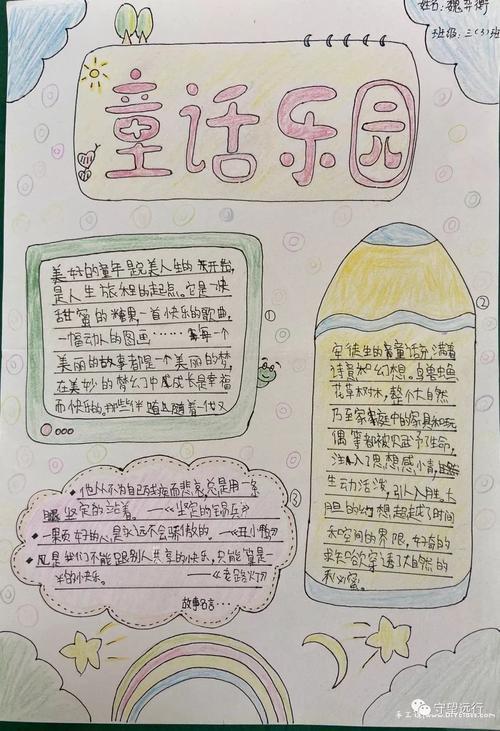 姓名:魏弈衡
班级:三(3)班
童话乐园
美好的童年是完美人生的开始,
是人生旅程的起点。它是一块
甜蜜的糖果,一首快乐的歌曲,
一幅动人的图画……每一个
美丽的故事都是一个美丽的梦,
在美妙的梦幻中成长是幸福
而快乐的。那些伴随着一代又
①
②
安徒生的童话充满着
诗意和幻想。鸟兽虫鱼
花草树木,整个大自然
乃至家庭中的家具和玩
偶等都被赋予了生命,
注入了思想感情,
生动活泼,引人入胜。大
胆的幻想超越了时间
和空间的界限,好奇的
求知欲穿透了大自然的
③
他从不为自己残疾而悲哀,总是用一条
腿坚定的站着。——《坚定的锡兵》
一颗好的心是永远不会骄傲的。——《丑小鸭》
凡是我们不能跟别人共享的快乐,只能算是一
半的快乐。——《老路灯》
故事名言…
守望远行
手工 www.DIYclass.com